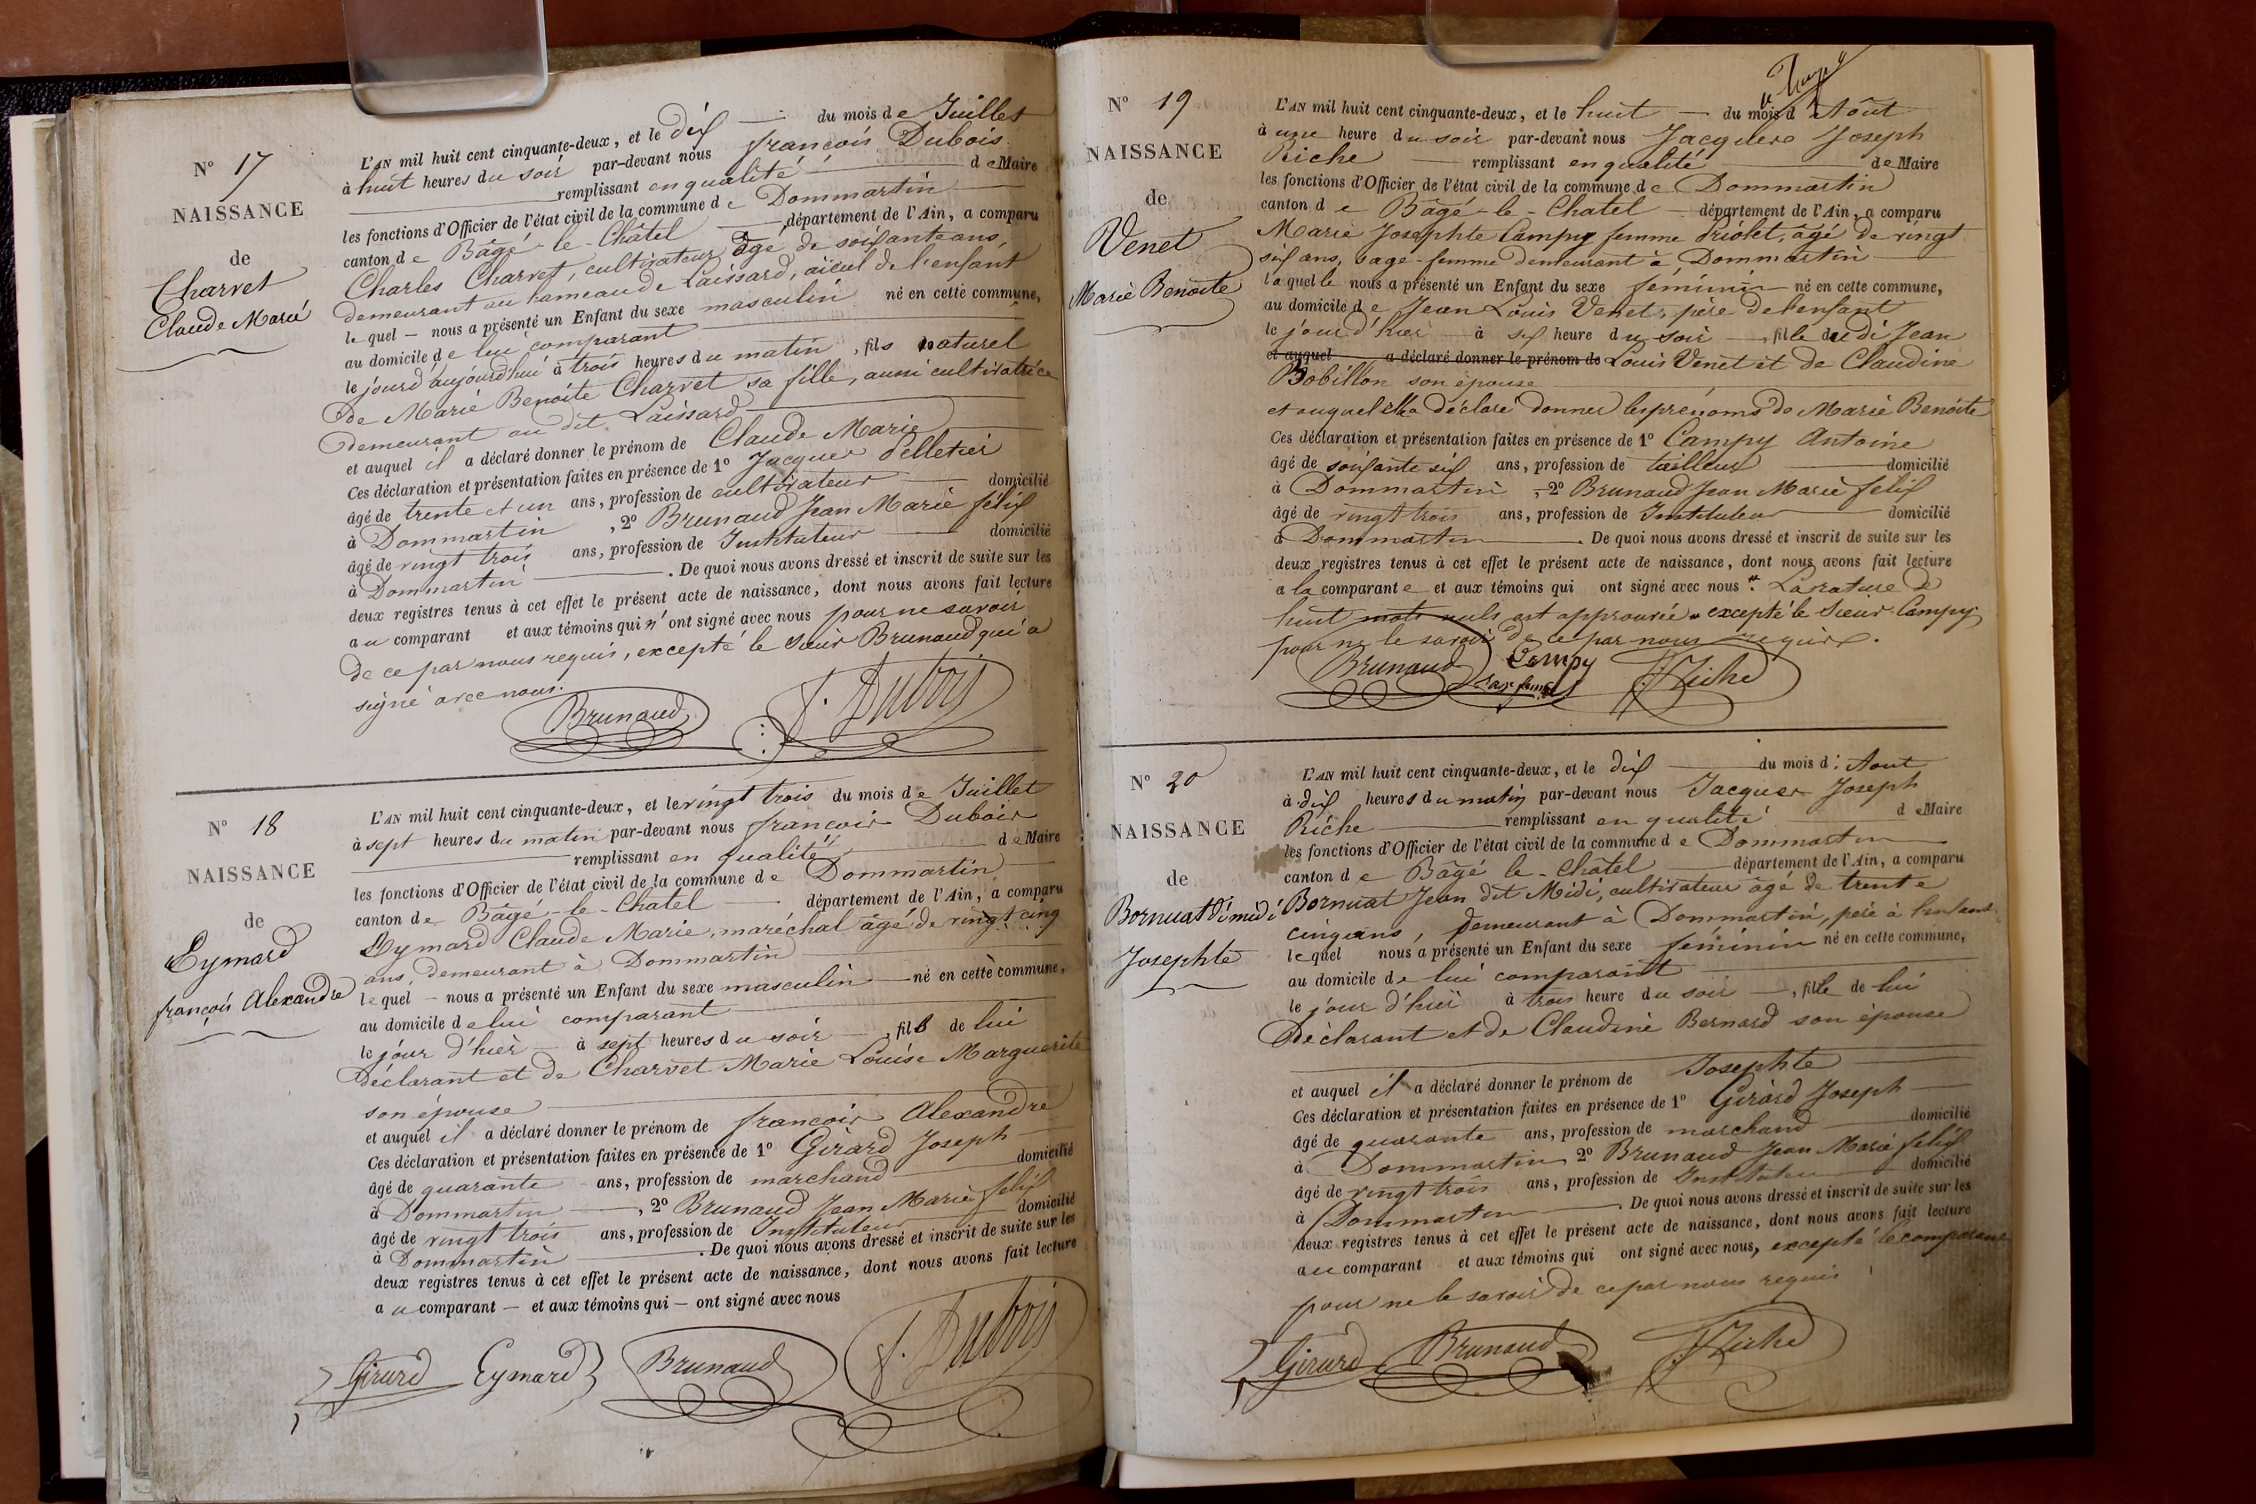 N° 17
NAISSANCE
de
Charvet
Claude Marie
L'AN mil huit cent cinquante-deux, et le dix du mois de Juillet
à huit heures du soir par-devant nous françois Dubois
remplissant en qualité de Maire
les fonctions d'Officier de l'état civil de la commune de Dommartin
canton de Bâgé-le-Châtel département de l'Ain, a comparu
Charles Charvet, cultivateur âgé de soixante ans,
demeurant au hameau de Laissard, aïeul de l'enfant
lequel nous a présenté un Enfant du sexe masculin né en cette commune,
au domicile de lui comparant
le jourd'aujourd'hui à trois heures du matin, fils naturel
de Marie Benoîte Charvet sa fille, aussi cultivatrice
demeurant au dit Laissard
et auquel il a déclaré donner le prénom de Claude Marie
Ces déclaration et présentation faites en présence de 1° Jacques Pelletier
âgé de trente et un ans, profession de cultivateur domicilié
à Dommartin, 2° Brunaud Jean Marie félix
âgé de vingt trois ans, profession de Instituteur domicilié
à Dommartin. De quoi nous avons dressé et inscrit de suite sur les
deux registres tenus à cet effet le présent acte de naissance, dont nous avons fait lecture
au comparant et aux témoins qui n'ont signé avec nous pour ne savoir
de ce par nous requis, excepté le Sieur Brunaud qui a
signé avec nous.
Brunaud f. Dubois
N° 18
NAISSANCE
de
Eymard
françois Alexandre
L'AN mil huit cent cinquante-deux, et le vingt trois du mois de Juillet
à sept heures du matin par-devant nous françois Dubois
remplissant en qualité de Maire
les fonctions d'Officier de l'état civil de la commune de Dommartin
canton de Bâgé-le-Chatel département de l'Ain, a comparu
Eymard Claude Marie, maréchal âgé de vingt cinq
ans, demeurant à Dommartin
lequel nous a présenté un Enfant du sexe masculin né en cette commune,
au domicile de lui comparant
le jour d'hier à sept heures du soir, fils de lui
déclarant et de Charvet Marie Louise Marguerite
son épouse
et auquel il a déclaré donner le prénom de françois Alexandre
Ces déclaration et présentation faites en présence de 1° Girard Joseph
âgé de quarante ans, profession de marchand domicilié
à Dommartin, 2° Brunaud Jean Marie félix
âgé de vingt trois ans, profession de Instituteur domicilié
à Dommartin. De quoi nous avons dressé et inscrit de suite sur les
deux registres tenus à cet effet le présent acte de naissance, dont nous avons fait lecture
au comparant et aux témoins qui ont signé avec nous
Girard Eymard Brunaud f. Dubois
N° 19
NAISSANCE
de
Venet
Marie Benoîte
L'AN mil huit cent cinquante-deux, et le huit du mois d'Août
à une heure du soir par-devant nous Jacques Joseph
Riche remplissant en qualité de Maire
les fonctions d'Officier de l'état civil de la commune de Dommartin
canton de Bâgé-le-Chatel département de l'Ain, a comparu
Marie Josephte Campy femme Priolet, âgé de vingt
six ans, sage-femme demeurant à Dommartin
laquelle nous a présenté un Enfant du sexe féminin né en cette commune,
au domicile de Jean Louis Venet, père de l'enfant
le jour d'hier à six heure du soir, fille du di Jean
et auquel a déclaré donner le prénom de Louis Venet et de Claudine
Bobillon son épouse
et auquel elle a déclaré donner les prénoms de Marie Benoîte
Ces déclaration et présentation faites en présence de 1° Campy Antoine
âgé de soixante six ans, profession de tailleur domicilié
à Dommartin, 2° Brunaud Jean Marie félix
âgé de vingt trois ans, profession de Instituteur domicilié
à Dommartin. De quoi nous avons dressé et inscrit de suite sur les
deux registres tenus à cet effet le présent acte de naissance, dont nous avons fait lecture
a la comparante et aux témoins qui ont signé avec nous. La rature de
huit mots nuls est approuvée excepté le Sieur Campy
pour ne le savoir de ce par nous requis.
Brunaud Campy sage femme J. Riche
N° 20
NAISSANCE
de
Bornuat di midi
Josephte
L'AN mil huit cent cinquante-deux, et le dix du mois d'Aout
à dix heures du matin par-devant nous Jacques Joseph
Riche remplissant en qualité de Maire
les fonctions d'Officier de l'état civil de la commune de Dommartin
canton de Bâgé le-Châtel département de l'Ain, a comparu
Bornuat Jean dit Midi, cultivateur âgé de trente
cinq ans, demeurant à Dommartin, père à l'enfant
lequel nous a présenté un Enfant du sexe féminin né en cette commune,
au domicile de lui comparant
le jour d'hier à trois heure du soir, fille de lui
déclarant et de Claudine Bernard son épouse
et auquel il a déclaré donner le prénom de Josephte
Ces déclaration et présentation faites en présence de 1° Girard Joseph
âgé de quarante ans, profession de marchand domicilié
à Dommartin 2° Brunaud Jean Marie félix
âgé de vingt trois ans, profession de Instituteur domicilié
à Dommartin. De quoi nous avons dressé et inscrit de suite sur les
deux registres tenus à cet effet le présent acte de naissance, dont nous avons fait lecture
au comparant et aux témoins qui ont signé avec nous, excepté le comparant
pour ne le savoir de ce par nous requis
Girard Brunaud J. Riche